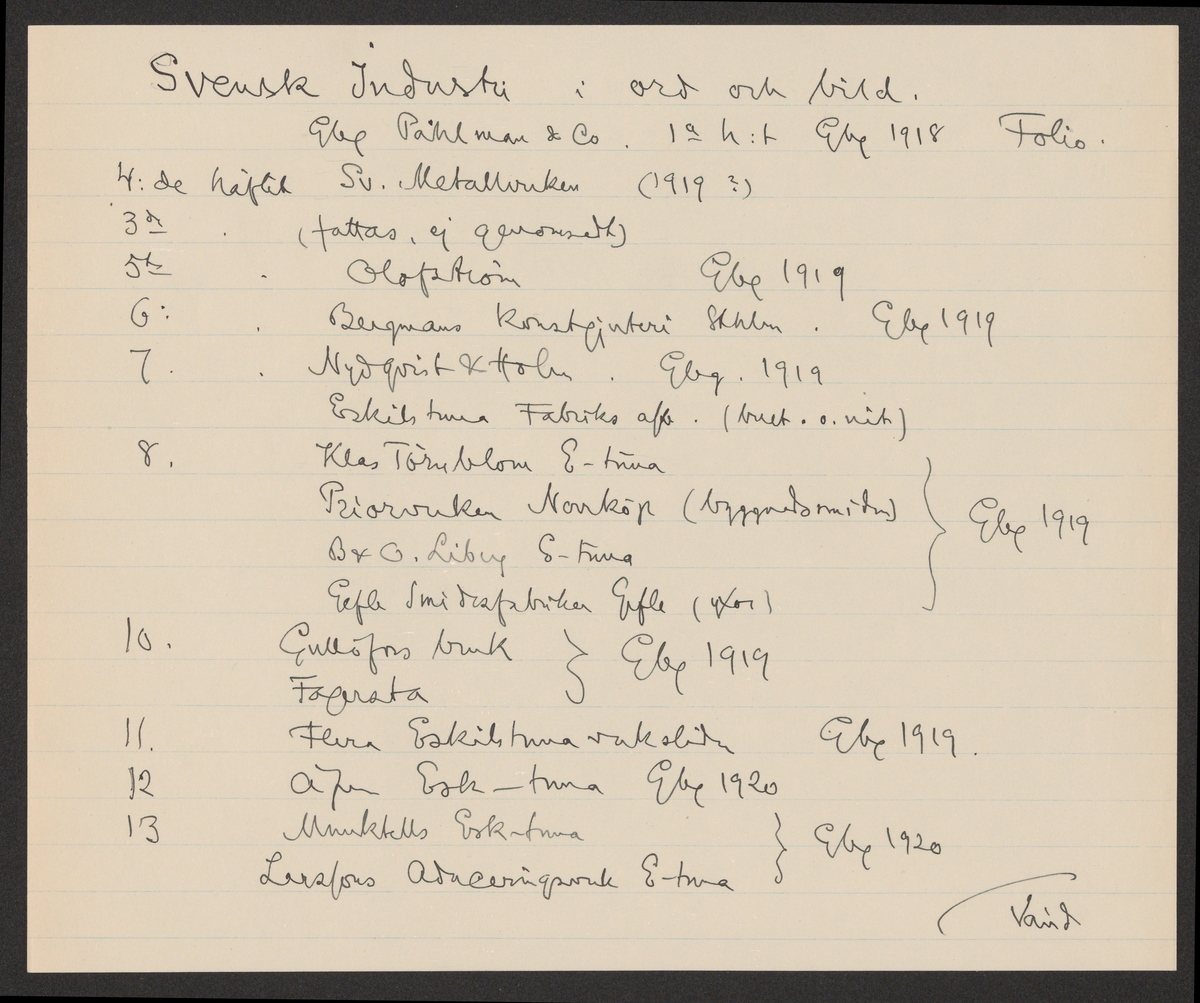 Svensk Industri i ord och bild.
Gbg Påhlman & Co. 1a h:t Gbg 1918 Folio.
4:de häftet Sv. Metallverken (1919?)
3de . (fattas, ej genomsedt)
5te . Olofström Gbg 1919
6: . Bergmans Konstgjuteri Sthlm. Gbg 1919
7. . Nydqvist & Holm. Gbg. 1919
Eskilstuna Fabriks afb. (bult. o. nit)
8. Klas Törnblom E-tuna
Priorverken Norrköp (byggnadssmiden)
B & O. Liberg E-tuna
Gefle Smidesfabriker Gefle (yxor)
} Gbg 1919
10. Gullöfors bruk
Fagersta
} Gbg 1919
11. Flera Eskilstuna Gbg 1919.
12 Esk-tuna Gbg 1920
13 Munktells Esk-tuna
Aduceringsverk E-tuna
} Gbg 1920
Vänd